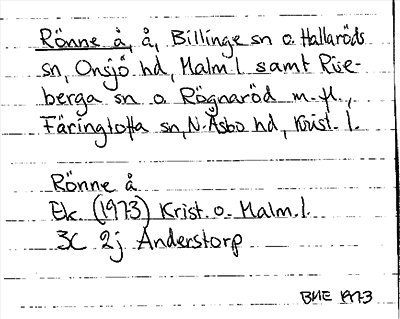 Rönne å, å, Billinge sn o. Hallaröds
sn, Onsjö hd, Malm.l. samt Rise-
berga sn o. Rögnaröd m.fl.,
Färingtofta sn, N.Åsbo hd, Krist. l.
Rönne å
Ek. (1973) Krist. o. Malm.l.
3C 2j Anderstorp
BHE 1973